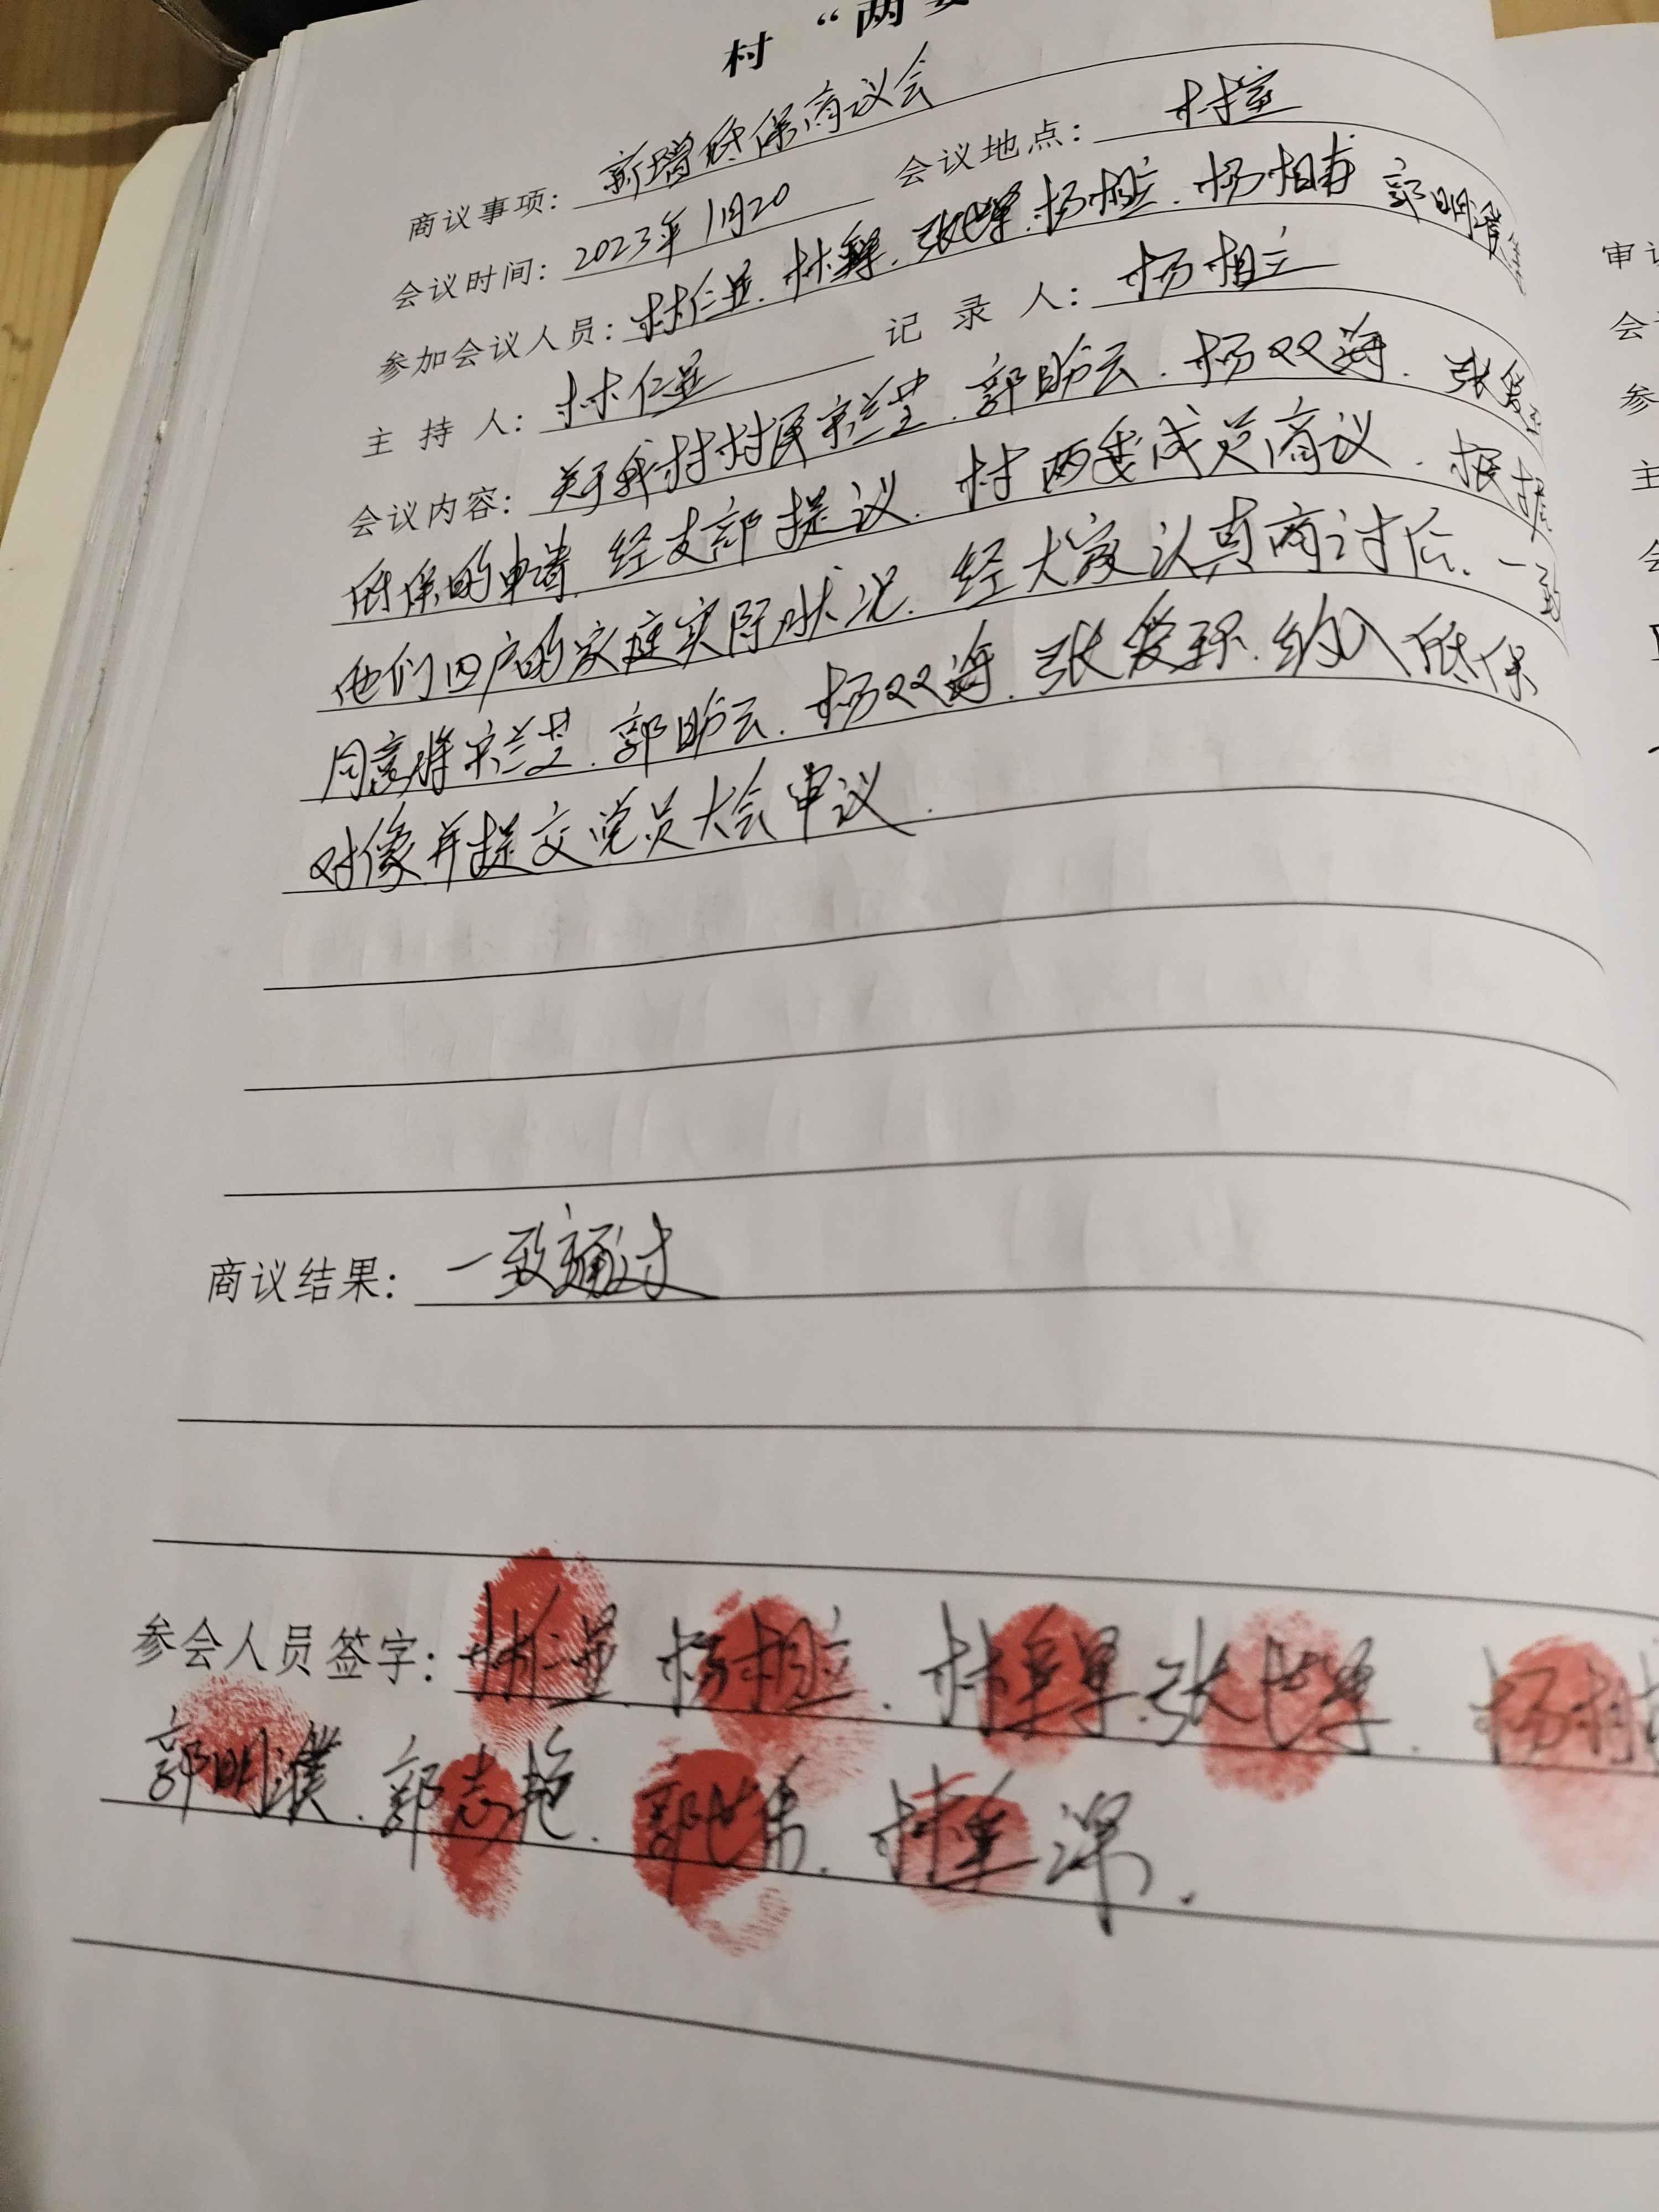 村 “两
商议事项: 新增低保商议会
会议时间: 2023年1月20 会议地点: 村室
参加会议人员: 林仁显. 张世军. 杨相立. 杨相春 郭明濮
主 持 人: 林仁显 记 录 人: 杨相立
会议内容: 关于我村村民宋兰芝. 郭助云. 杨双海. 张爱
低保的申请. 经支部提议. 村两委成员商议. 根据
他们四户的家庭实际状况. 经大家认真商讨后. 一致
同意将宋兰芝. 郭助云. 杨双海. 张爱环. 纳入低保
对像并提交党员大会审议.
商议结果: 一致通过
参会人员签字: 林仁显. 杨相立. 张世军. 杨相
郭明濮. 郭志艳.
审
会
参
主